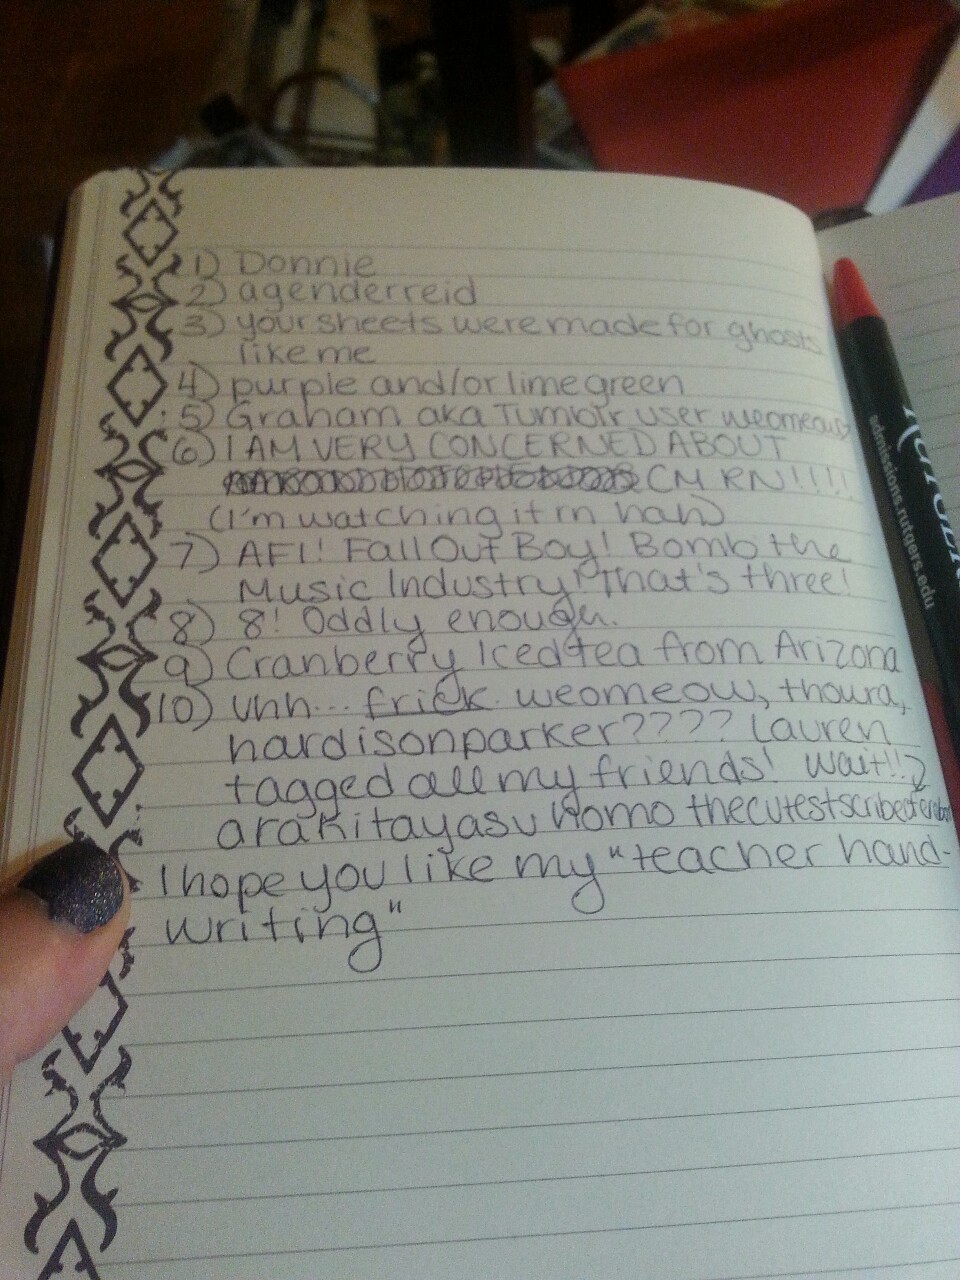 1) Donnie
2) agenderreid
3) your sheets were made for ghosts
like me
4) purple and/or lime green
5) Graham aka Tumblr user weomeow
6) I AM VERY CONCERNED ABOUT
CM RN!!!!
(I'm watching it rn hah)
7) AFI! Fall Out Boy! Bomb the
Music Industry! That's three!
8) 8! Oddly enough.
9) Cranberry Iced tea from Arizona
10) Uhh... frick. weomeow, thoura,
hardisonparker???? Lauren
tagged all my friends! Wait!!
arakitayasu homo
I hope you like my "teacher hand-
writing"
admissions.rutgers.edu